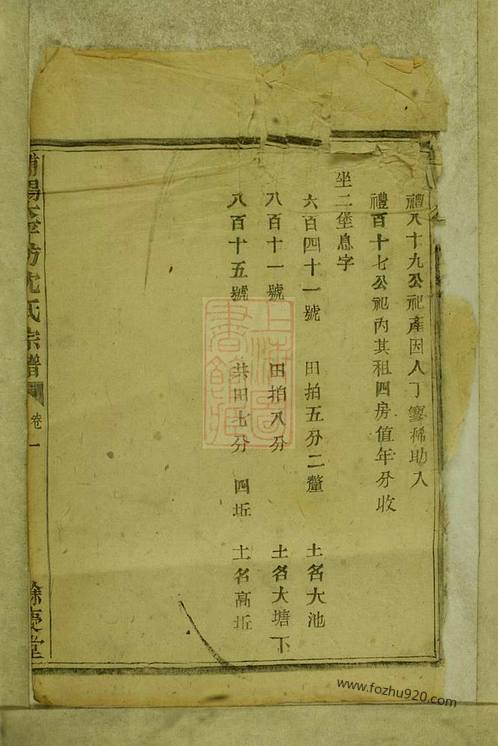 禮八十九公祀產因人丁寥稀助入
禮百十七公祀內其租四房值年分收
坐二堡息字
六百四十一號 田拍五分二釐 土名大池
八百十一號 田拍八分 土名大塘下
八百十五號 共田七分 四坵 土名高坵
沈氏宗譜 卷一
餘慶堂
上海圖書館藏
www.fozhu920.com